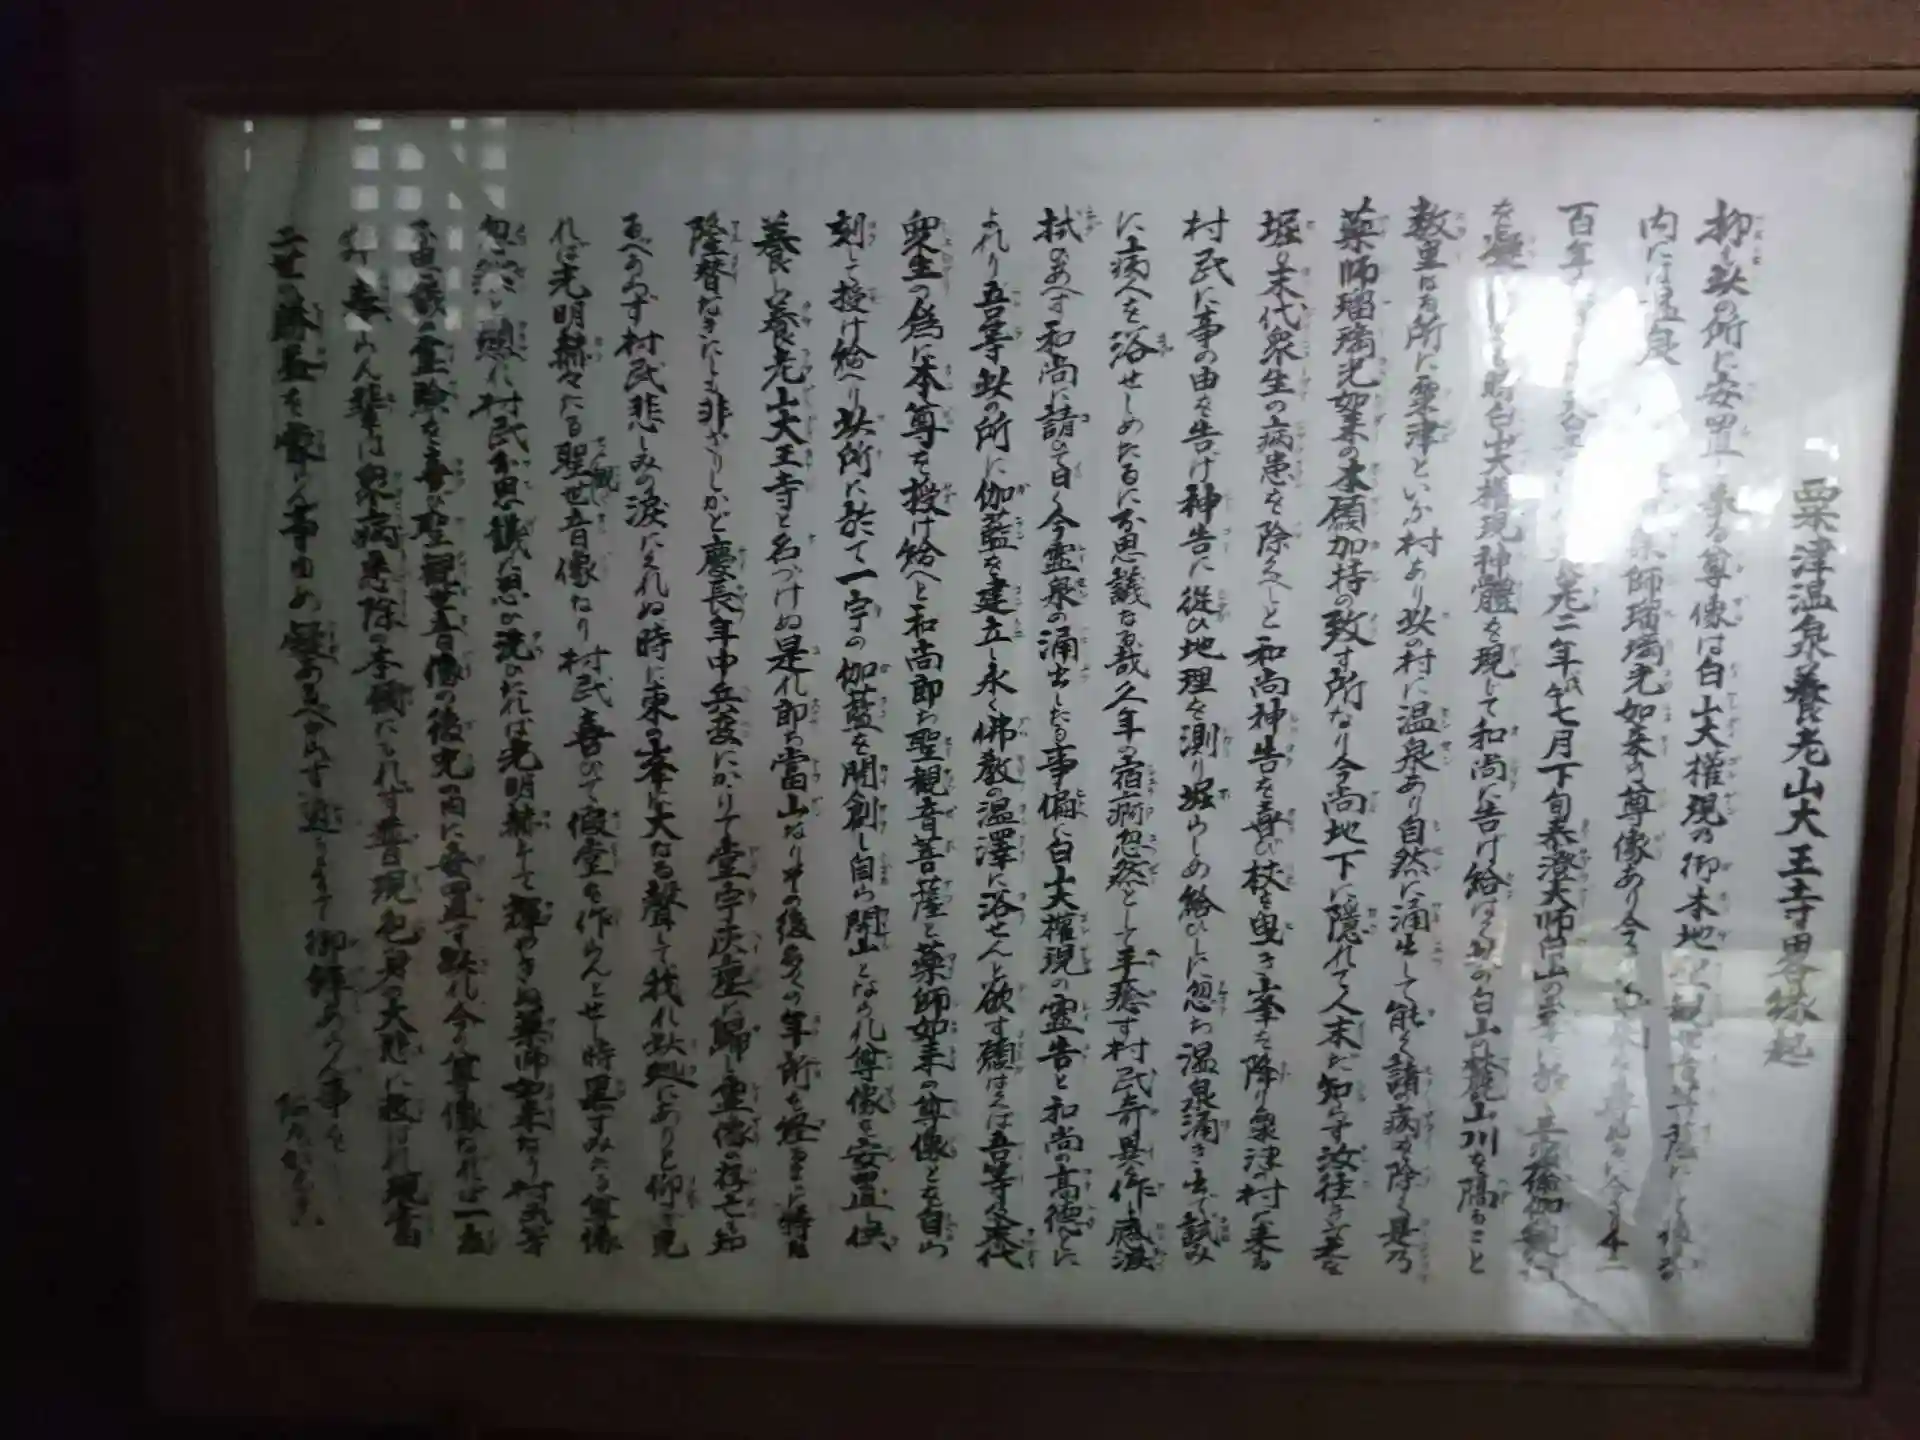 粟津温泉養老山大王寺畧縁起
抑も此の所に安置し奉る尊像は白山大権現の御本地
内には温泉 師瑠璃光如来の尊像あり今
百年 養老二年戊午七月下旬泰澄大師白山の
を凝 白山大権現神體を現じて和尚に告げ給はく此の白山の麓山川を隔ること
数里なる所に粟津といふ村あり此の村に温泉あり自然に涌出して能く諸病を除く是乃
薬師瑠璃光如来の本願加持の致す所なり今尚地下に隠れて人未だ知らず汝往き
堀り末代衆生の病患を除くべしと和尚神告を喜び杖を曳き峯を降り粟津の村に来る
村民に事の由を告げ神告に従ひ地理を測り堀らしめ給ひしに忽ち温泉涌き出で試み
に病人を浴せしめたるに不思議なる哉久年の宿痾忽然として平癒す村民奇異の作し感涙
拭ひあへず和尚に請ひて曰く今霊泉の涌出したる事偏に白山大権現の霊告と和尚の高徳とに
よれり吾等此の所に伽藍を建立し永く佛教の温澤に浴せんと欲す願はくは吾等及末代
衆生の為に本尊を授け給へと和尚即ち聖観音菩薩と薬師如来の尊像とを自ら
刻して授け給へり此所に於て一宇の伽藍を開創し自ら開山となられ尊像を安置し供
養し養老山大王寺と名づけぬ是れ即ち當山なり其の後多くの年所を経るまに時に
隆替なきにしも非ざりしかど慶長年中兵燹にかゝりて堂宇灰塵に歸し霊像の存亡を知
るべからず村民悲しみの涙にくれぬ時に東の峯に大なる聲して我れ此処にありと仰て見
れば光明赫々たる聖観世音像なり村民喜びて假堂を作らんとせし時黒ずみたる尊像
忽然と顕れ村民不思議に思か洗ひたれば光明赫として輝やきぬ薬師如来なり村民等
不思議の霊験を喜び聖観世音像の後光の内に安置す此れ今の尊像なれば一度
拜し奉らん輩は衆病悉除の本願にもれず普現色身の大悲に救はれ現當
二世の勝益を蒙らん事ゆめ疑あるべからず 御拜あらん事を